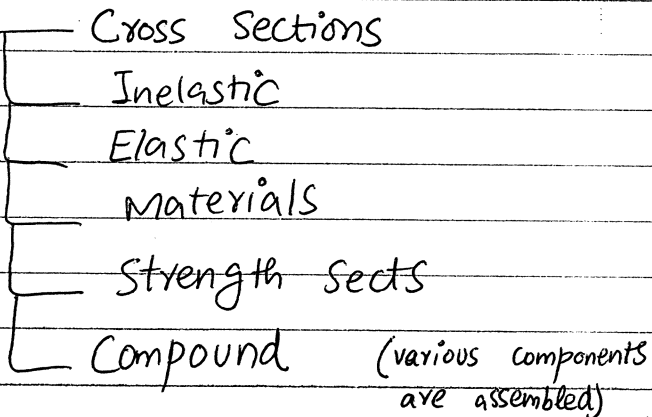 Cross Sections
Inelastic
Elastic
Materials
Strength Sects
Compound (various components
are assembled)